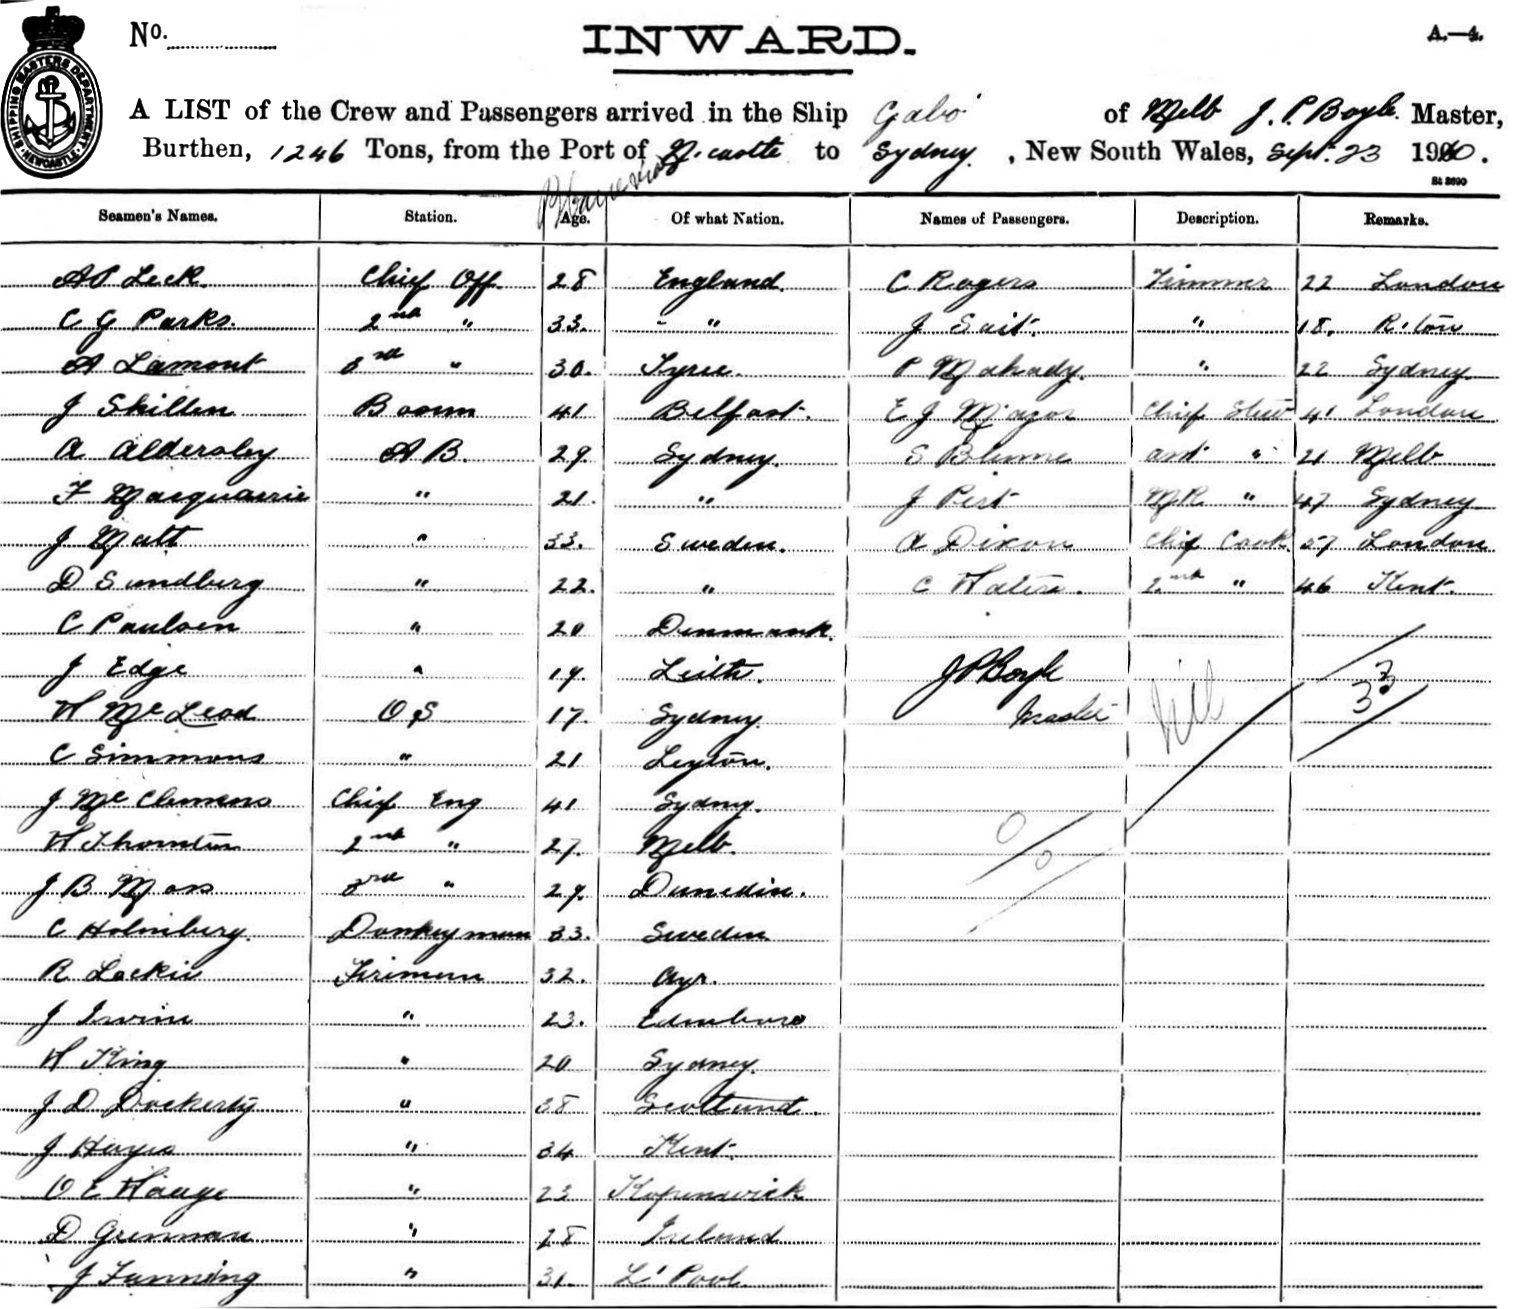 No.
INWARD.
A.—4.
SHIPPING MASTERS DEPARTMENT. NEWCASTLE.
A LIST of the Crew and Passengers arrived in the Ship Gabo of Melb J. P. Boyle Master,
Burthen, 1246 Tons, from the Port of N. castle to Sydney, New South Wales, Sept. 23 1900.
St 3690
Seamen's Names. Station. Age. Of what Nation. Names of Passengers. Description. Remarks.
A P Leck Chief Off. 28 England. C Rogers Trimmer 22 London
C G Parks. 2nd " 33. " J Sait. " 18. R. ton
A Lamont 3rd " 30. Tyree. P Mahady. " 22 Sydney.
J Skillen Bosun 41 Belfast. E J Major Chief Stew 41 London
A Aldersley A B. 29. Sydney. S Blume asst " 21 Melb
F Macquarrie " 21. " J Pest M R " 47 Sydney
J Matt " 33. Sweden. A Dixon Chief Cook 57 London
D Sundberg " 22. " C Waters. 2nd " 46 Kent.
C Paulsen " 20 Denmark.
J Edge " 19. Leith. J P Boyle
W McLeod O S 17. Sydney. Master nil 33
C Simmons " 21 Leyton.
J McClemens Chief Eng 41 Sydney.
W Thornton 2nd " 27. Melb.
J B Moss 3rd " 29. Dunedin.
C Holmberg. Donkeyman 33. Sweden
R Lockie Firemen 32. Ayr.
J Irvine " 23. Edinboro
W King " 20 Sydney.
J D Dockerty " 38 Scotland.
J Hayes " 34 Kent.
O E Hauge " 23 Kopenwick
D Grennan " 28 Ireland
J Fanning " 31. L'Pool